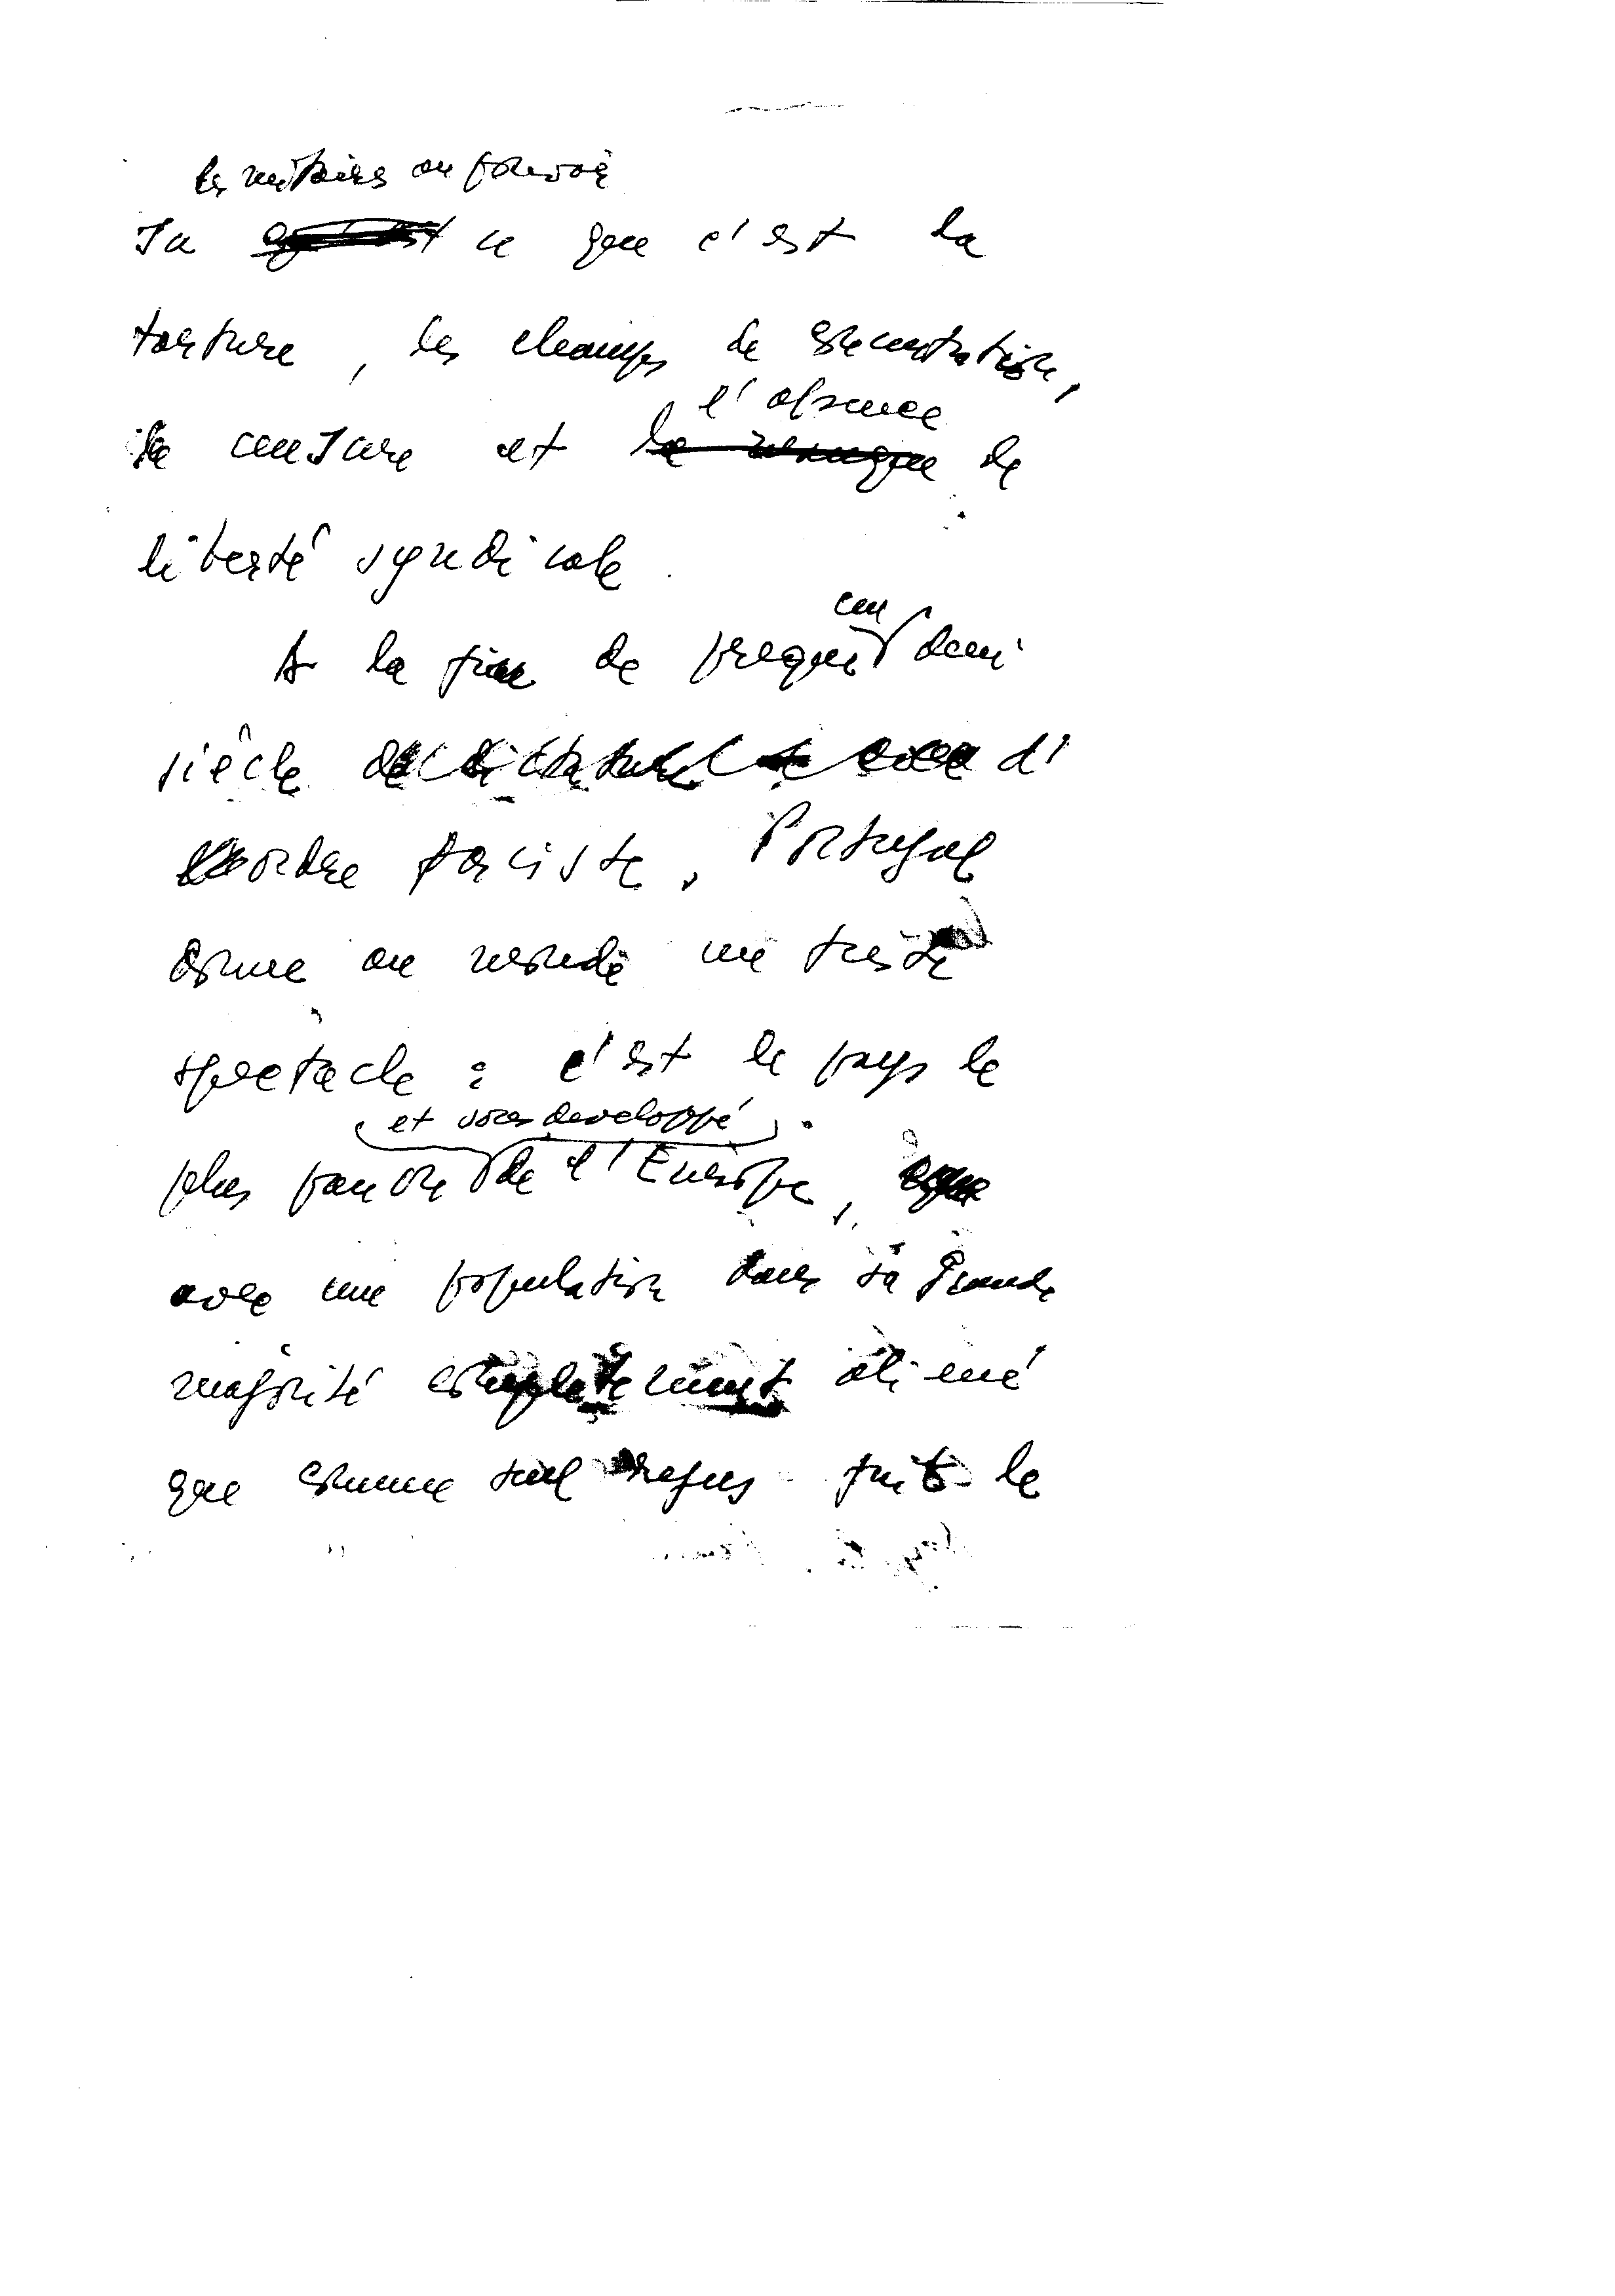 les militaires au pouvoir
su ce que c'est la
torture, les champs de concentration,
l'absence
la censure et la manque de
liberté syndicale.
un
A la fin de presque demi
siècle de dictature d'
ordre faciste, Portugal
donne au monde un triste
spectacle : c'est le pays le
et sous developpé
plus pauvre de l'Europe,
avec une population dans sa grande
majorité complètement aliené
que comme seul refus fuit le